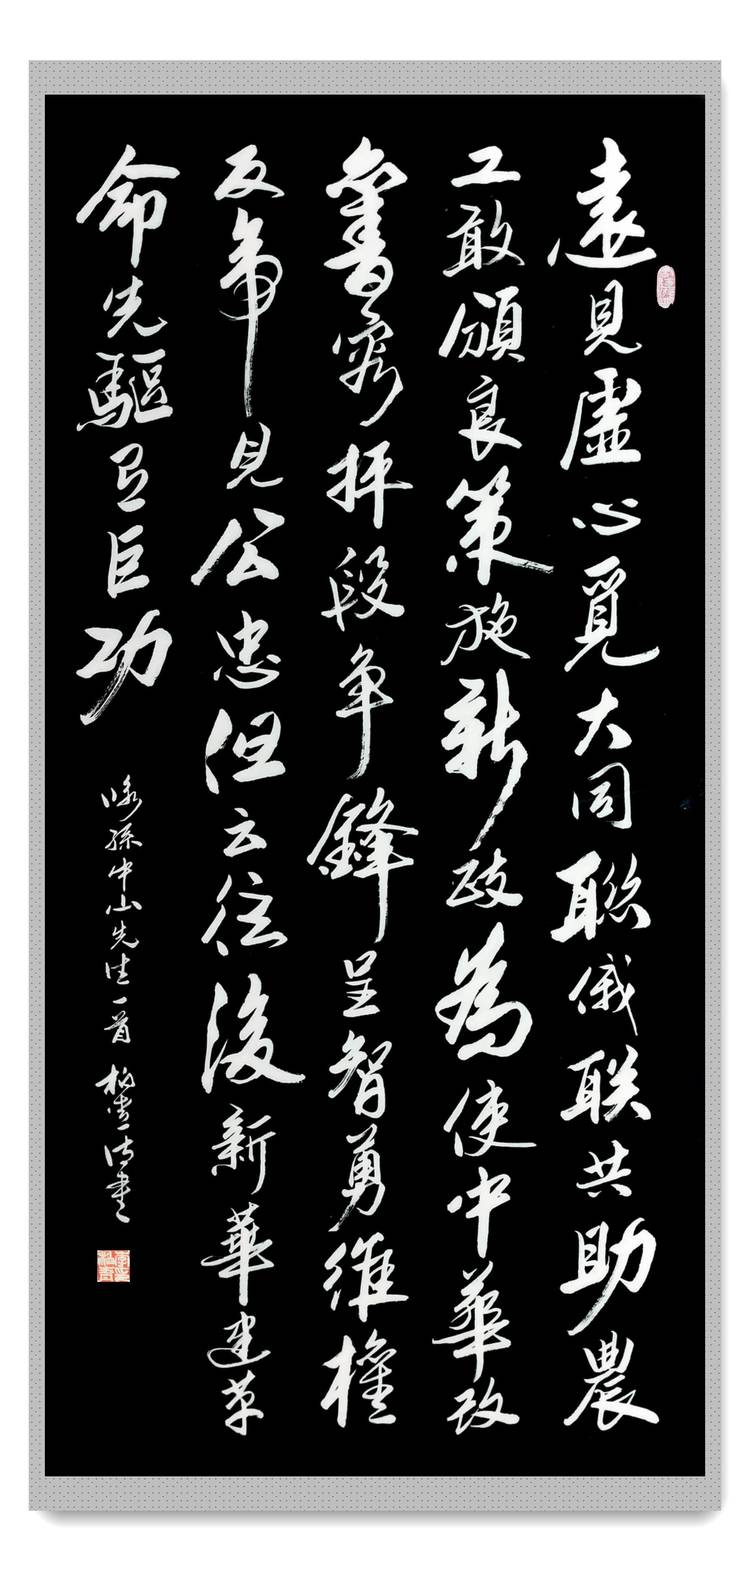 遠見虛心覓大同聯俄联共助農
工敢頒良策施新政為使中華改
舊容抨段争鋒呈智勇維權
反帝見公忠但云往後新華建革
命先驅巨功
咏孫中山先生一首